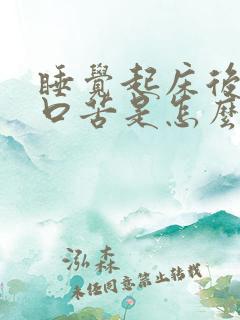 睡覺起床後
口苦是怎麼
泓森
未經同意禁止轉載